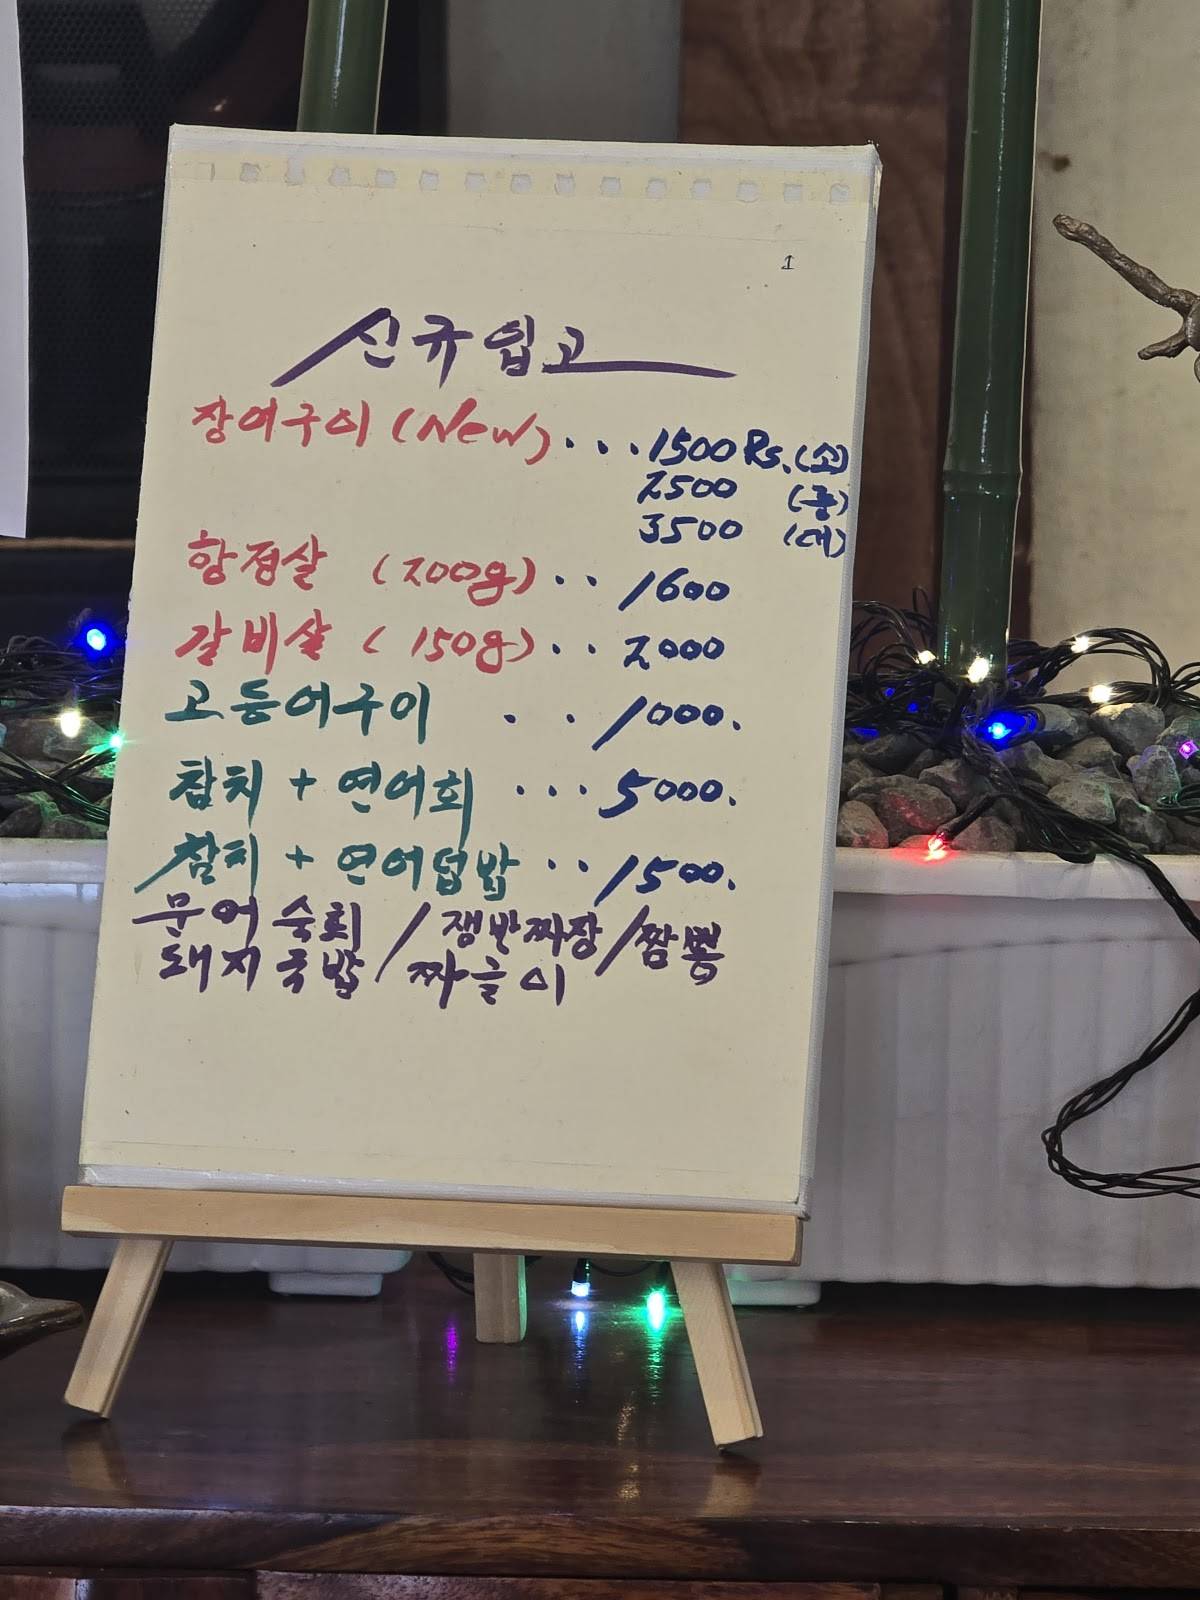 신규입고
장어구이 (New) ... 1500 Rs. (소)
2500 (중)
3500 (대)
항정살 (200g) .. 1600
갈비살 (150g) .. 2000
고등어구이 . . 1000.
참치 + 연어회 ... 5000.
참치 + 연어덥밥 .. 1500.
문어숙회 / 쟁반짜장 / 짬뽕
돼지국밥 / 짜글이